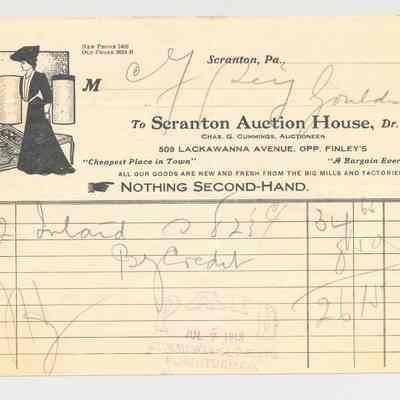 New Phone 1405
Old Phone 3523-R
Scranton, Pa.,
M
To Scranton Auction House, Dr.
Chas. G. Cummings, Auctioneer
509 LACKAWANNA AVENUE, OPP. FINLEY'S
"Cheapest Place in Town" "A Bargain Ever
ALL OUR GOODS ARE NEW AND FRESH FROM THE BIG MILLS AND FACTORIE
NOTHING SECOND-HAND.
2 Inland 34
By Credit 8
26
PAID
JUL